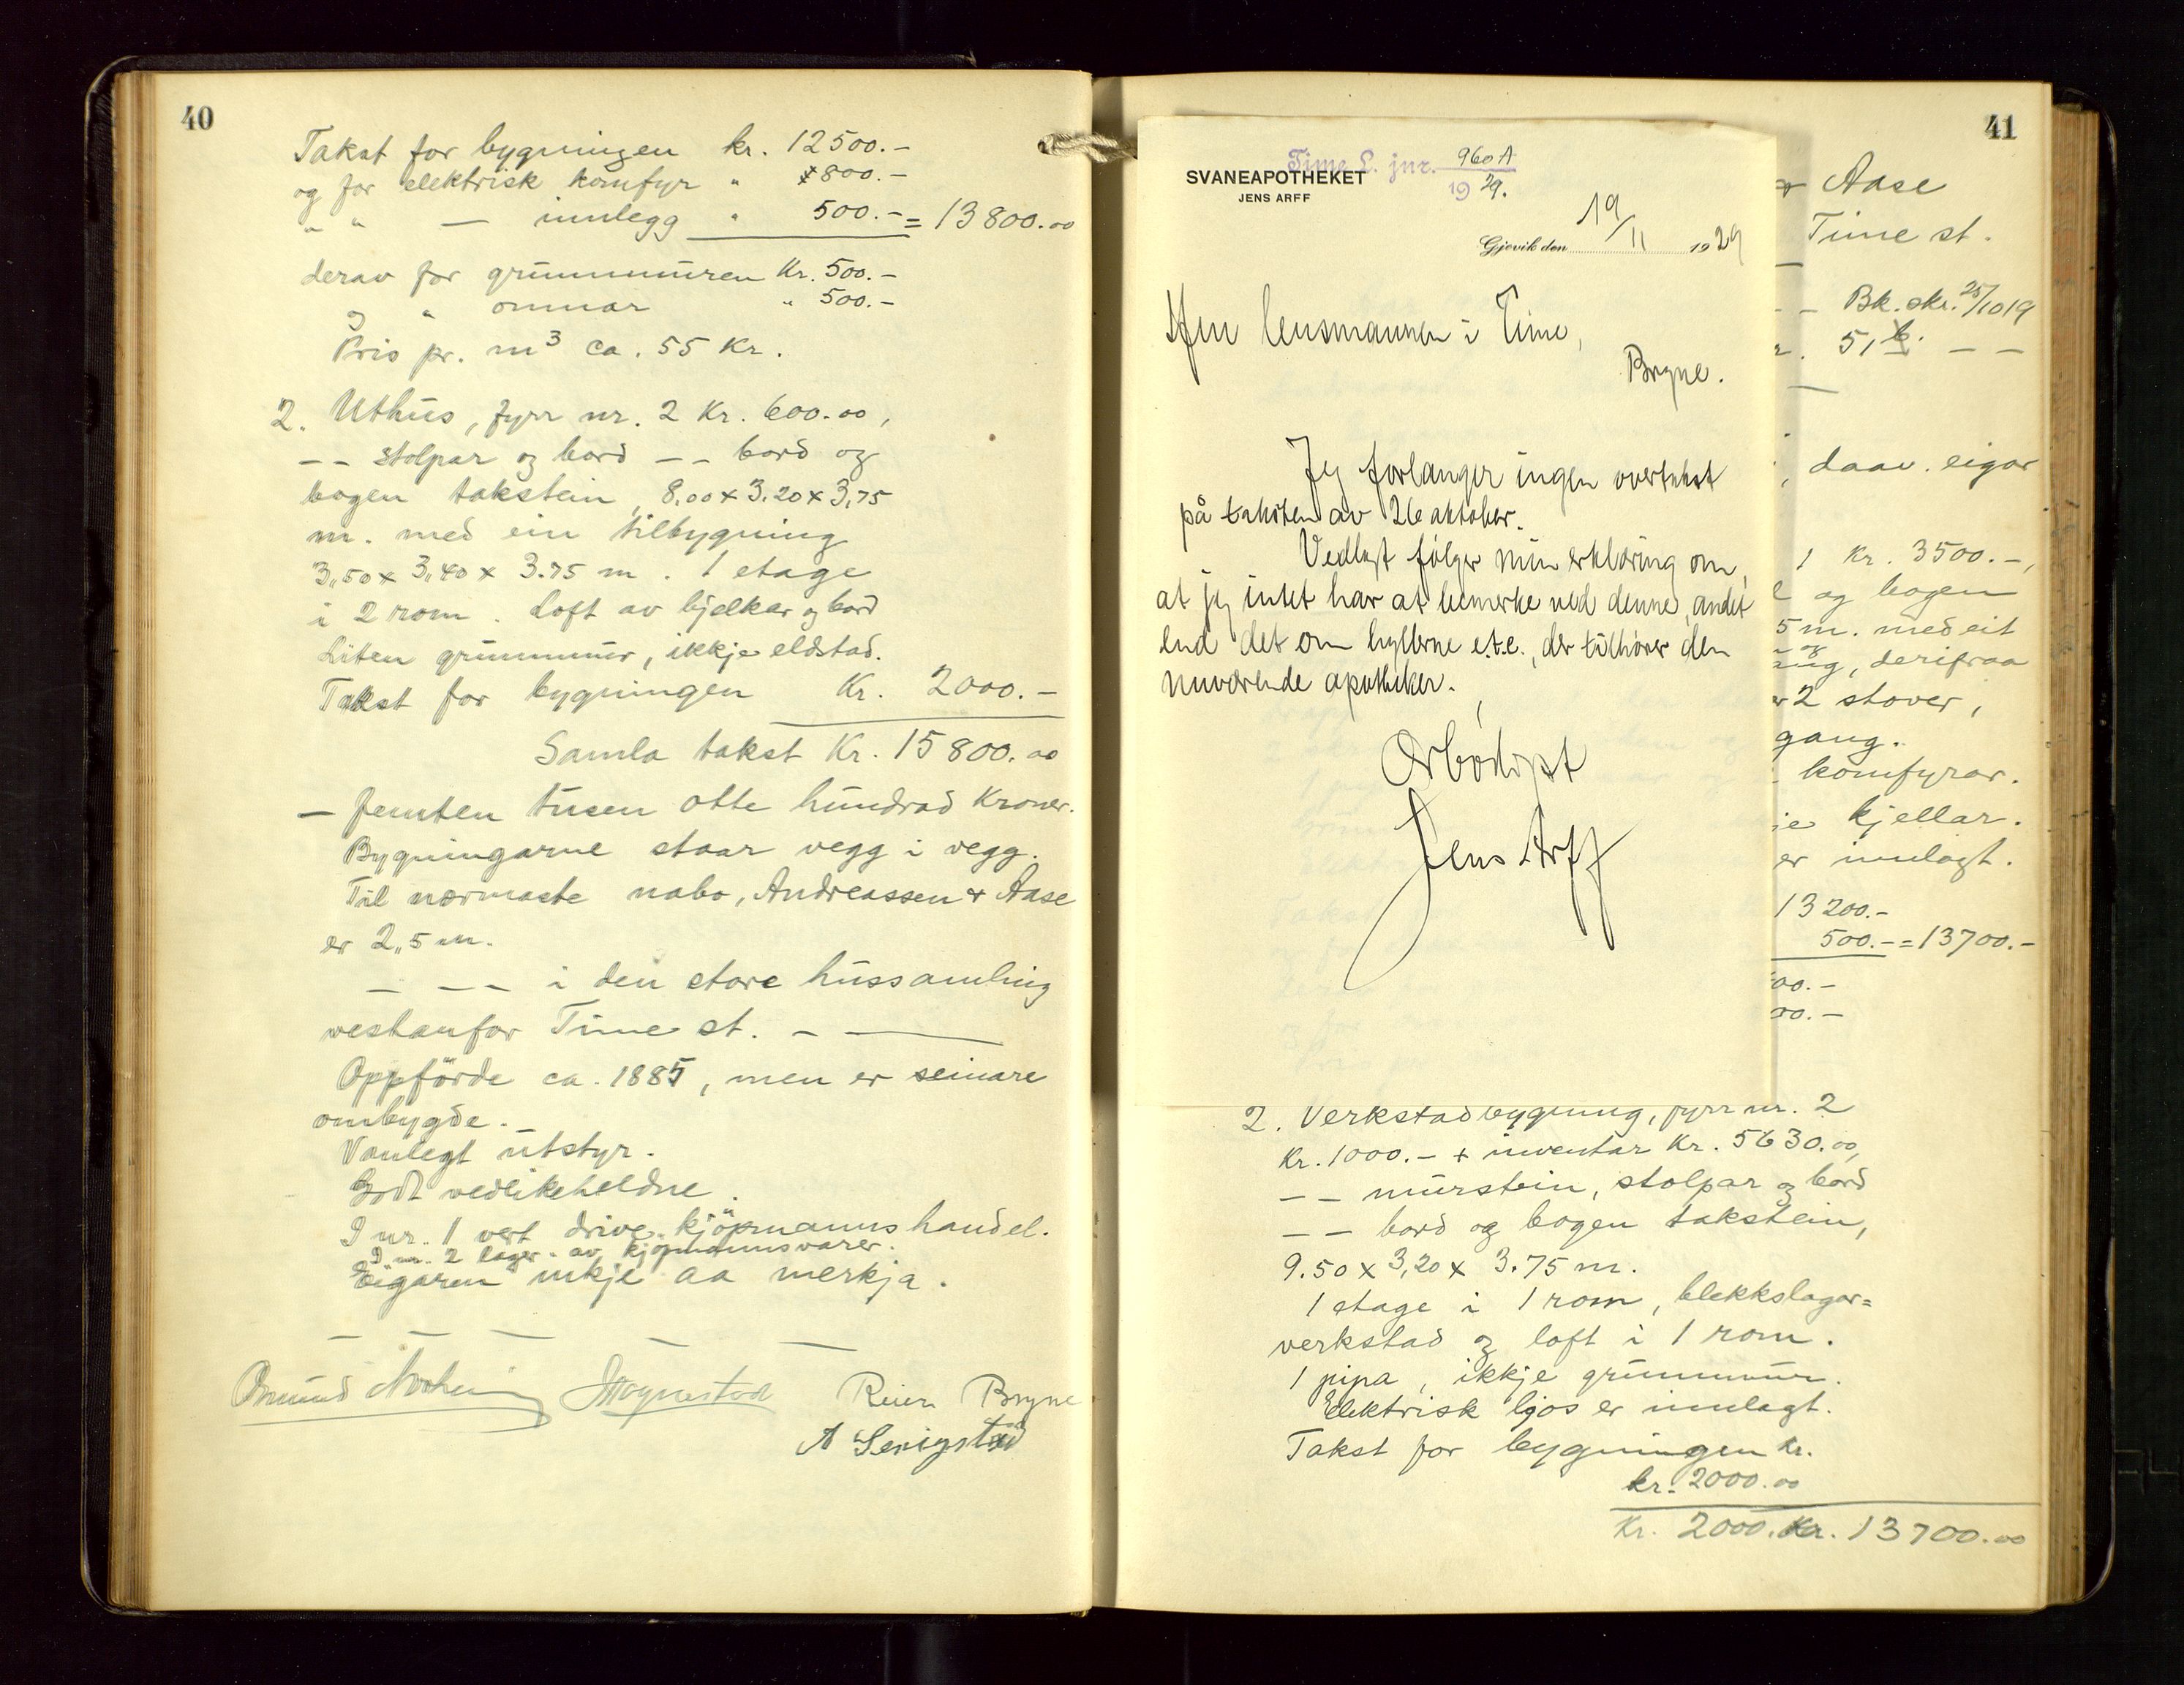 40
Takst for bygningen kr. 12500.-
og for elektrisk komfyr " 800.-
" " — innlegg " 500.- = 13800.00
derav for grunnmuren Kr. 500.-
og " omnar " 500.-
Pris pr. m3 ca. 55 Kr.
2. Uthus, fyrr nr. 2 Kr. 600.00,
-- stolpar og bord -- bord og
bogen takstein, 8,00 x 3.20 x 3,75
m. med ein tilbygning
3,50 x 3,40 x 3.75 m. 1 etage
i 2 rom. Loft av bjelkar og bord
Liten grunnmur, ikkje eldstad.
Takst for bygningen Kr. 2000.-
Samla takst Kr. 15800.00
— femten tusen otte hundrad Kroner.
Bygningarne staar vegg i vegg.
Til nærmaste nabo, Andreassen & Aase
er 2,5 m.
— -- i den store hussamling
vestanfor Time st. - —
Oppförde ca. 1885, men er seinare
ombygde.
Vanlegt utstyr.
Godt vedlikeheldne.
I nr. 1 vert drive kjöpmannshandel.
I nr. 2 lager av kjöpmannsvarer.
Eigaren inkje aa merkja.
— — — — —
Reier Bryne
A Serigstad
41
SVANEAPOTHEKET
JENS ARFF
Time L. jnr. 960 A
19 29.
Gjøvik den 19/11 1929
Herr lensmannen i Time,
Bryne.
Jeg forlanger ingen overtakst
på taksten av 26 oktober.
Vedlagt følger min erklæring om,
at jeg intet har at bemerke ved denne, andet
end det om hyllerne e.t.c., der tilhører den
nuværende apotheker.
Ærbødigst
Jens Arff
Aase
Time st.
-- Bk. skr. 25/10 19
51 -- 
, daav. eigar
1 Kr. 3500.-,
og bogen
5 m. med eit
og
, derifraa
2 stover,
gang.
komfyrar.
kjellar.
er innlagt.
13200.-
500.- = 13700.-
00.-
00.-
2. Verkstadbygning, fyrr nr. 2
Kr. 1000.- + inventar Kr. 5630.00,
-- murstein, stolpar og bord
-- bord og bogen takstein,
9.50 x 3,20 x 3.75 m.
1 etage i 1 rom, blekkslagar=
verkstad og loft i 1 rom.
1 pipa, ikkje grunnmur.
Elektrisk ljos er innlagt.
Takst for bygningen kr.
kr. 2000.00
Kr. 2000. Kr. 13700.00